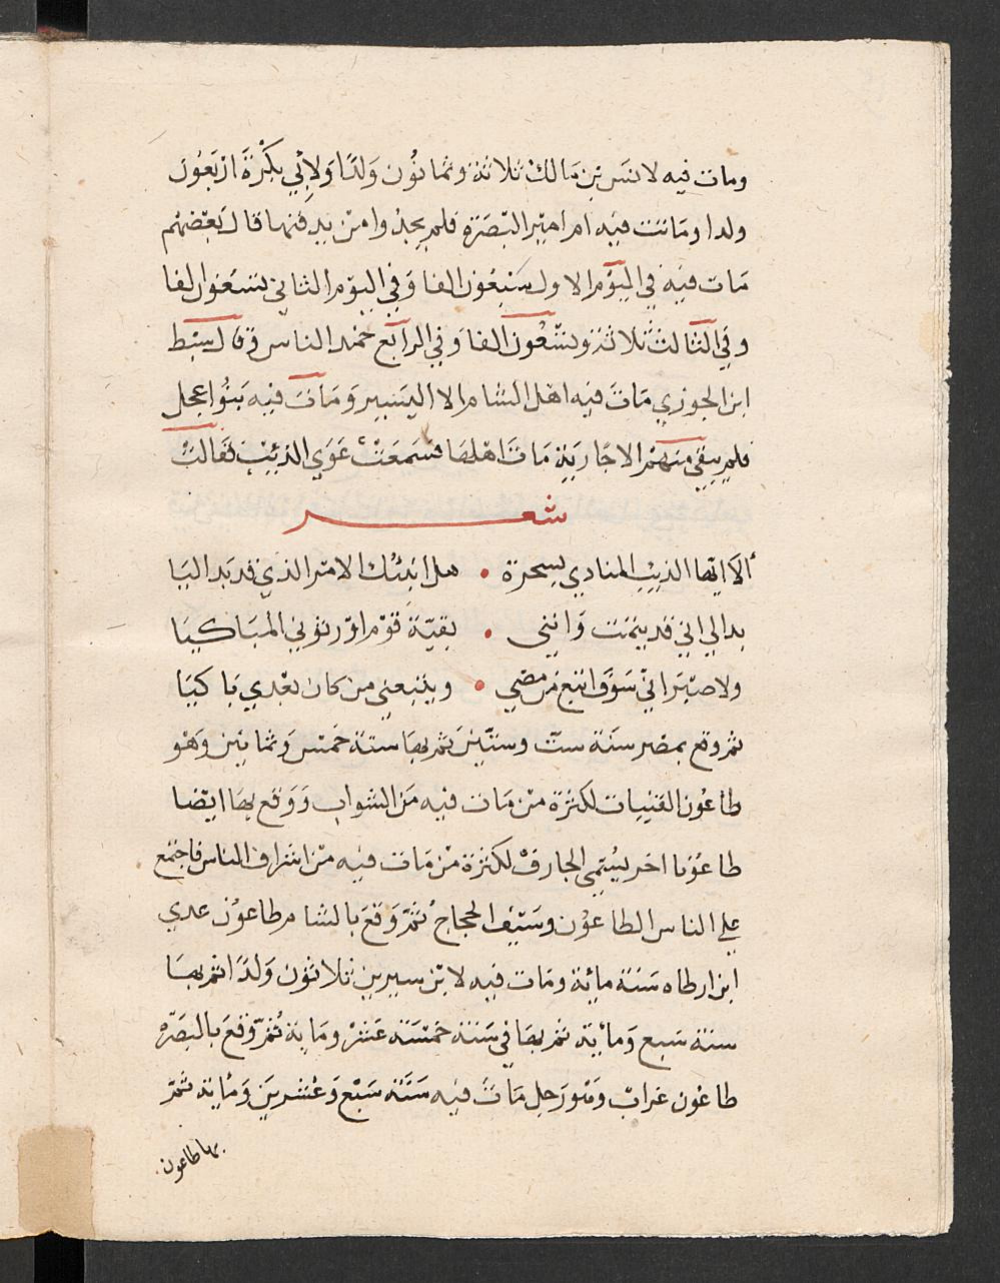 ومات فيه لانس بن مالك ثلاثة وثمانون ولدا ولابي بكرة اربعون
ولدا وماتت فيه ام امير البصرة فلم يجدوا من يدفنها قال بعضهم
مات فيه في اليوم الاول سبعون الفا وفي اليوم الثاني تسعون الفا
وفي الثالث ثلاثة وتسعون الفا وفي الرابع خمد الناس وقال سبط
ابن الجوزي مات فيه اهل الشام الا اليسير ومات فيه بنوا عجل
فلم يبقى منهم الا جارية مات اهلها فسمعت عوي الذيب فقالت
شعر
ألا ايها الذيب المنادي بسحرة • هل انبئك الامر الذي قد بد اليا
بدالي اني قد يتمت وانني • بقية قوم اورثوني المباكيا
ولا صبر اني سوف اتبع من مضي • ويتبعني من كان بعدي باكيا
ثم وقع بمصر سنة ست وستين ثم بها ستة خمس وثمانين وهو
طاعون الفتيات لكثرة من مات فيه من الشواب ووقع بها ايضا
طاعونا اخر ليسمى الجارف لكثرة من مات فيه من اشراف الناس فاجتمع
علي الناس الطاعون وسيف الحجاج ثم وقع بالشام طاعون عدي
ابن ارطاه سنة مائة ومات فيه لابن سيرين ثلاثون ولدا ثم بها
سنة سبع ومائة ثم بها في سنة خمسة عشر وماية ثم وقع بالبصره
طاعون غراب وهو رجل مات فيه سنة سبع وعشرين وماية ثم
بها طاعون